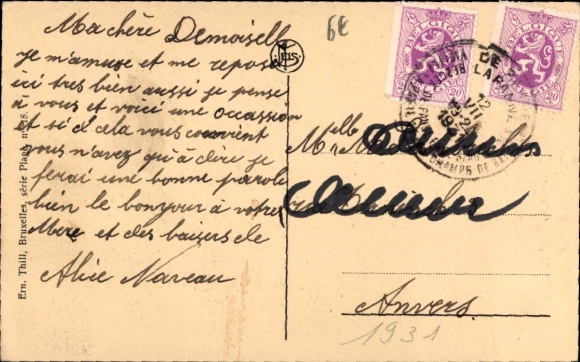 6E
Ma chère Demoiselle
je m'amuse et me repose
ici tres bien aussi je pense
à vous et voici une occassion
et si cela vous convient
vous n'avez qu'à dire je
ferai une bonne parole
bien le bonjour à votre
Mère et des baisers de
Alice Naveau
Mlle
Anvers
1931
Ern. Thill, Bruxelles, série Plage, n° 28.
BELGIQUE
BELGIE
20
BELGIQUE
20
DE
LA PANNE